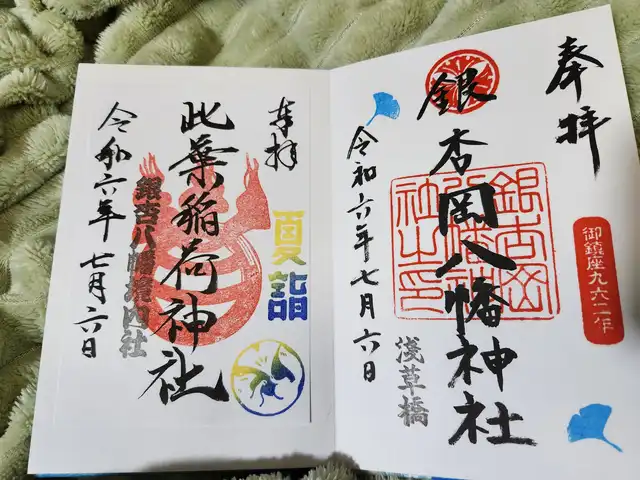 奉拝
銀杏岡八幡神社
令和六年七月六日
御鎮座九六二年
浅草橋
奉拝
此葉稲荷神社
令和六年七月六日
銀杏八幡境内社
夏詣